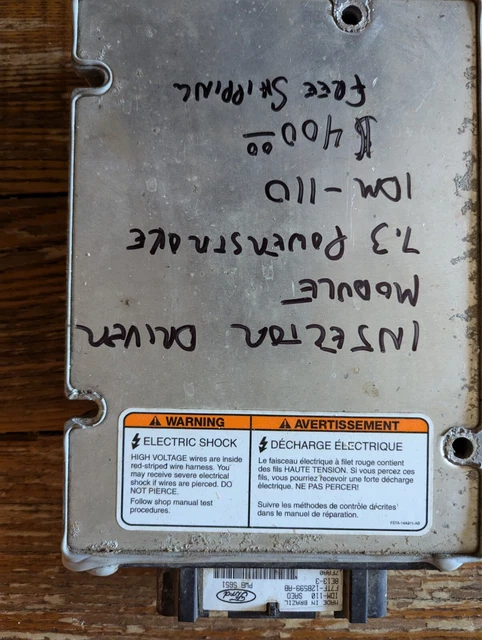 INJECTOR DRIVER
MODULE
7.3 POWERSTROKE
IDM-110
$400.00
FREE SHIPPING
WARNING
ELECTRIC SHOCK
HIGH VOLTAGE wires are inside
red-striped wire harness. You
may receive severe electrical
shock if wires are pierced. DO
NOT PIERCE.
Follow shop manual test
procedures.
AVERTISSEMENT
DÉCHARGE ÉLECTRIQUE
Le faisceau électrique à filet rouge contient
des fils HAUTE TENSION. Si vous percez ces
fils, vous pourriez recevoir une forte décharge
électrique. NE PAS PERCER!
Suivre les méthodes de contrôle décrites
dans le manuel de réparation.
MADE IN BRAZIL
IDM-110 SPEO
F7TF-12B599-AB
8E13-3
Ford
PWB 5651